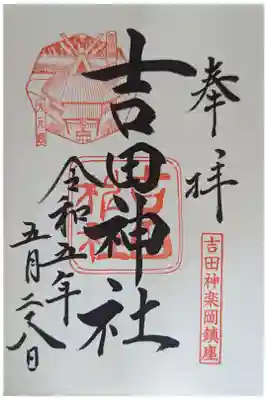 奉拝
吉田神楽岡鎮座
吉田神社
令和五年
五月二八日